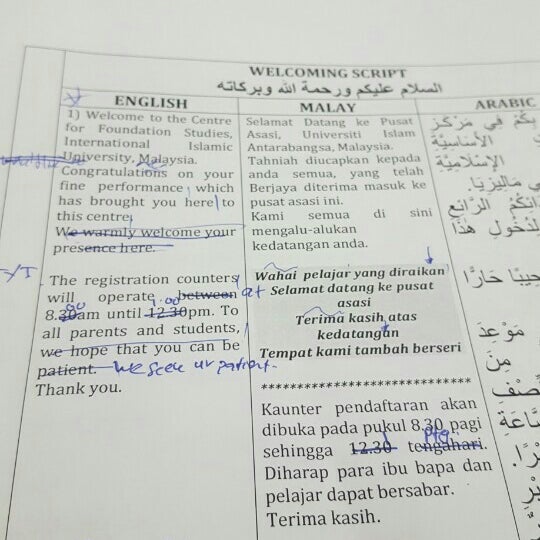 WELCOMING SCRIPT
السلام عليكم ورحمة الله وبركاته
ENGLISH
1) Welcome to the Centre
for Foundation Studies,
International Islamic
University, Malaysia.
Congratulations on your
fine performance which
has brought you here to
this centre
We warmly welcome your
presence here.
The registration counters
will operate between at
8.30am until 12.30pm. To
00
1.00
all parents and students,
we hope that you can be
patient. We seek ur patient.
Thank you.
MALAY
Selamat Datang ke Pusat
Asasi, Universiti Islam
Antarabangsa, Malaysia.
Tahniah diucapkan kepada
anda semua, yang telah
Berjaya diterima masuk ke
pusat asasi ini.
Kami semua di sini
mengalu-alukan
kedatangan anda.
Wahai pelajar yang diraikan
Selamat datang ke pusat
asasi
Terima kasih atas
kedatangan
Tempat kami tambah berseri
*****************************
Kaunter pendaftaran akan
dibuka pada pukul 8.30 pagi
sehingga 12.30 tengahari.
1
ptg
Diharap para ibu bapa dan
pelajar dapat bersabar.
Terima kasih.
ARABIC
بِكُمْ فِي مَرْكَزِ
الأَسَاسِيَّةِ
الإِسْلَامِيَّةِ
مَالِيزِيَا.
الرَّائِعِ
هَذَا
حَارًّا
مَوْعِدَ
مِنَ